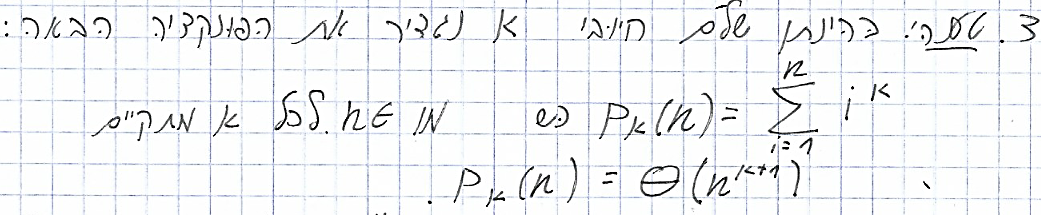 3. טענה: בהינתן שלם חיובי k נגדיר את הפונקציה הבאה:
P_k(n) = \sum_{i=1}^{n} i^k כש n ∈ ℕ. לכל k מתקיים
P_k(n) = Θ(n^{k+1}).